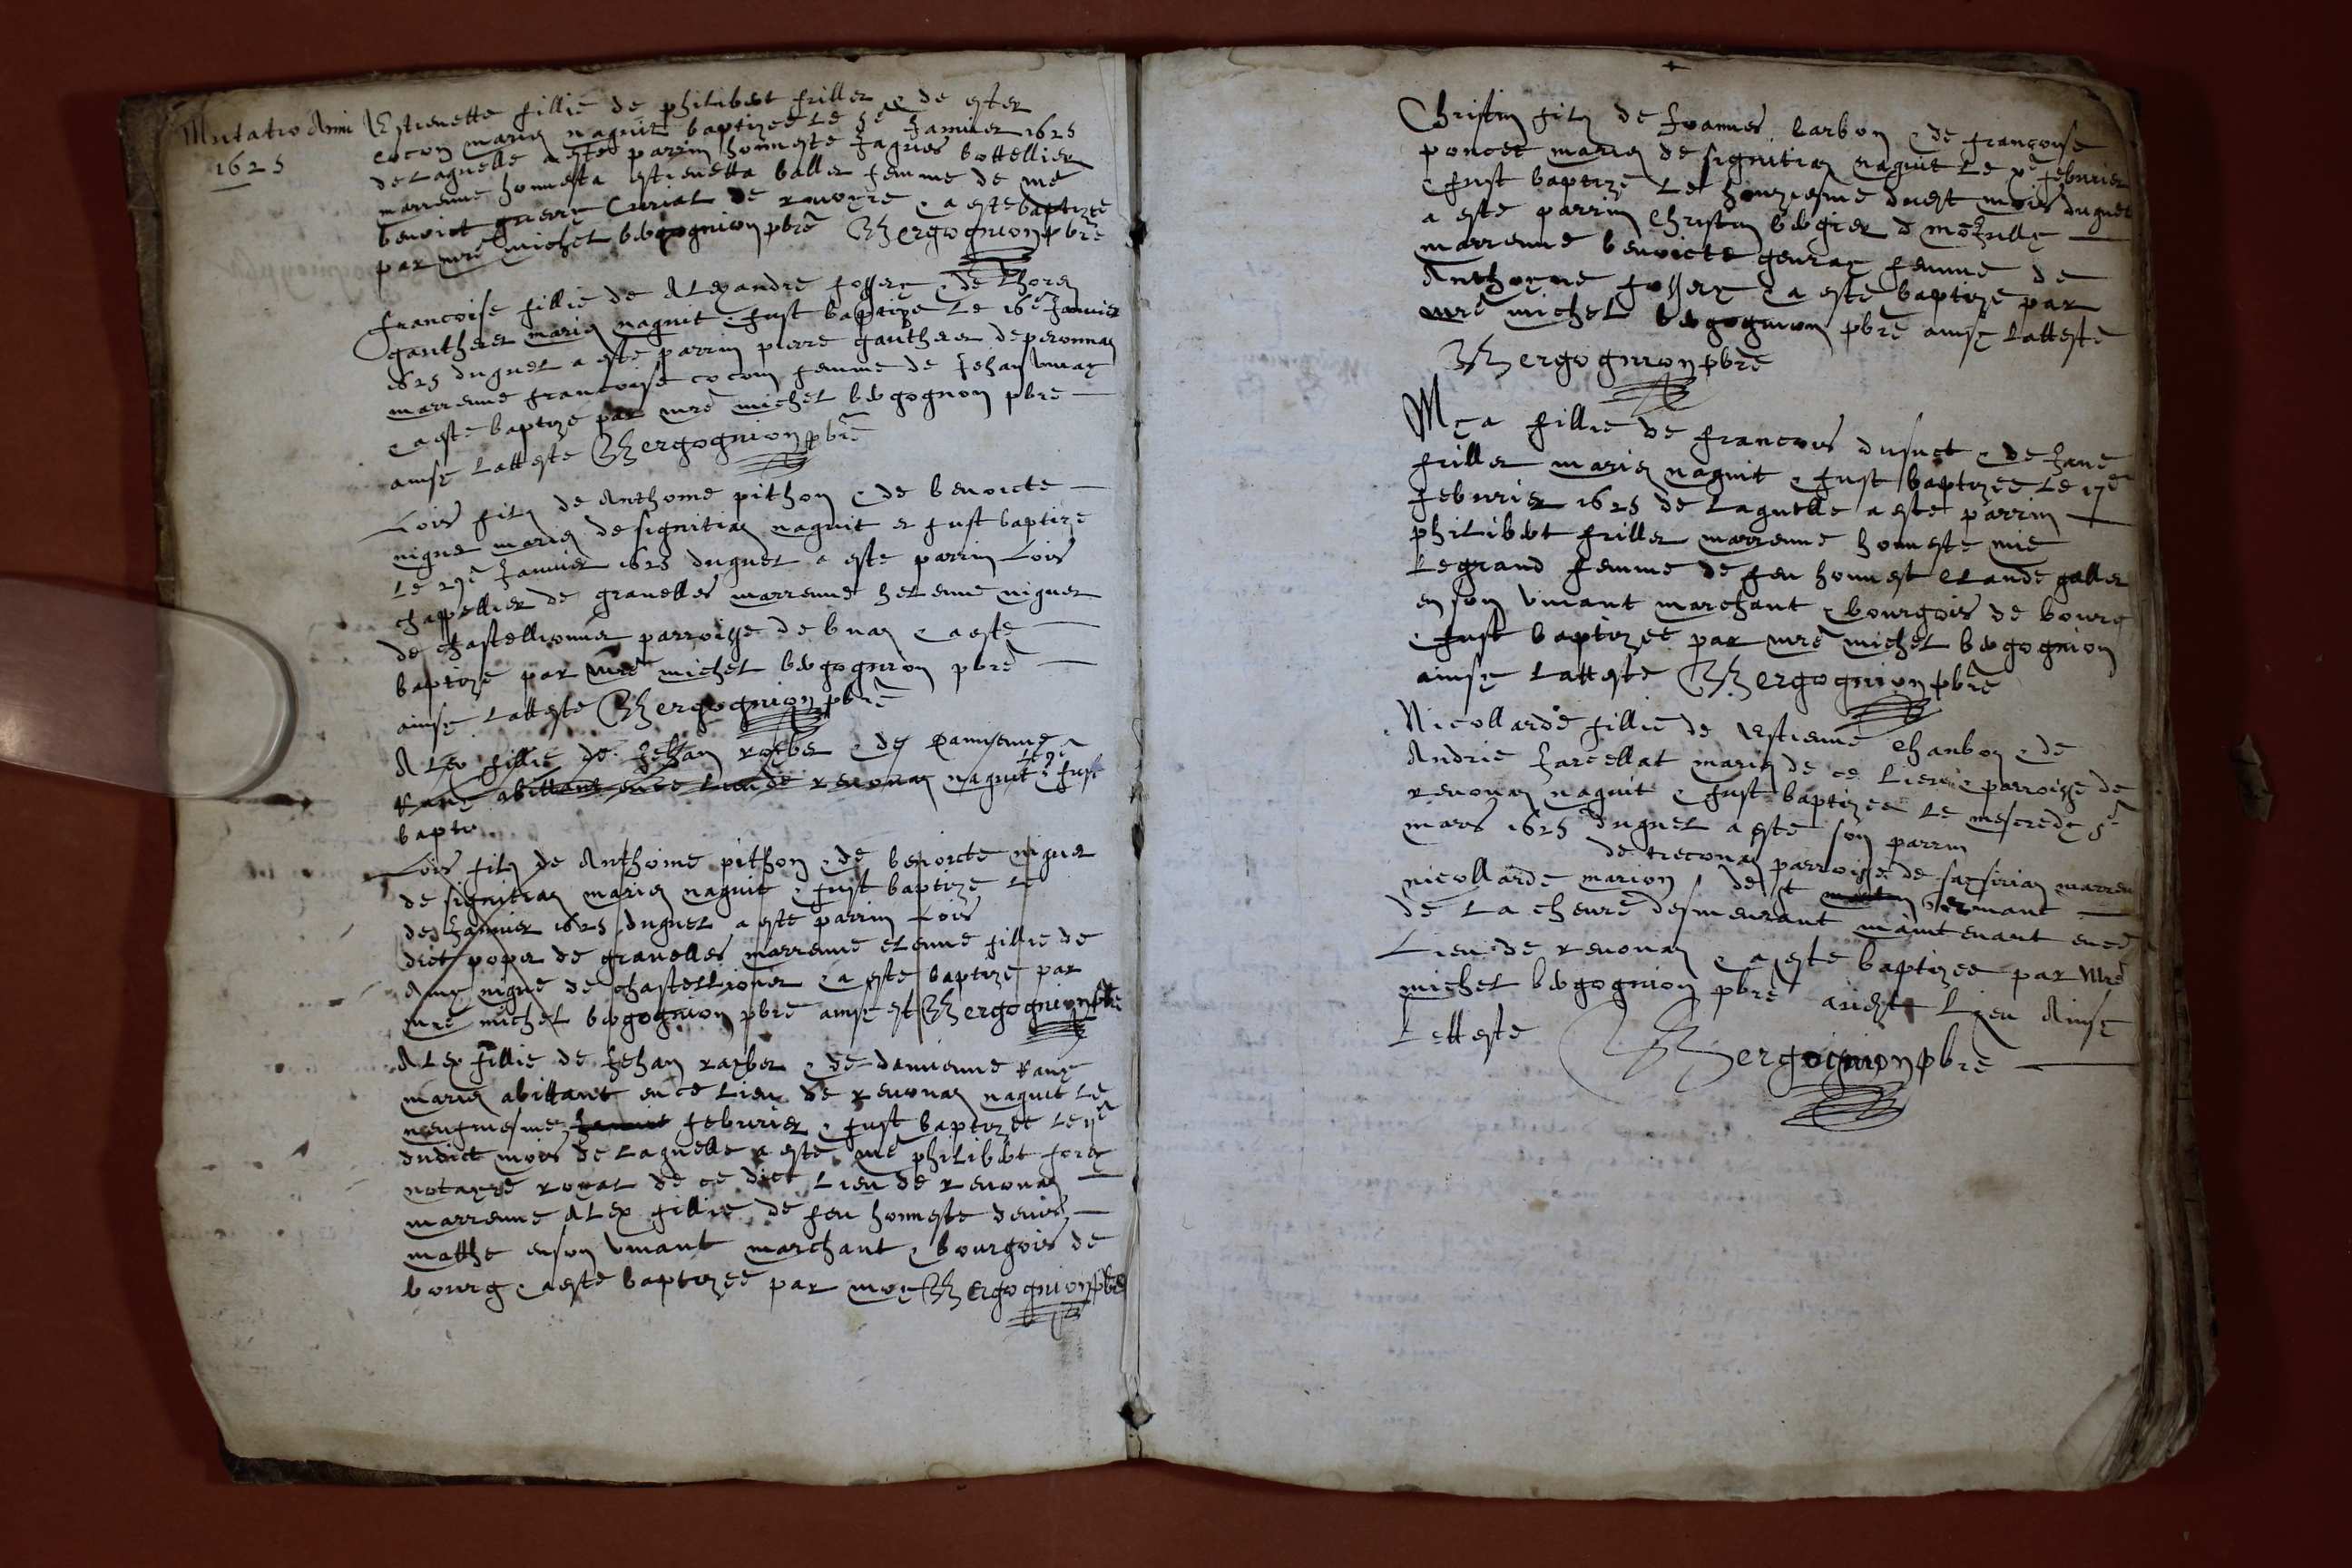 Mutatio Anni
1625
Estienette fillie de philibert friller & de ester
cocon mariez naquit baptizee le 5e Januier 1625
de laquelle a este parrin honneste Jaques bottellier
marrenne honnesta estienetta baller femme de me
benoict curial de & a este baptizee
par mre michel bergognion pbre Bergognion pbre
francoise fillie de Alexandre fossery & de
gautherer mariez naquit & fust baptize le 16e Januier
1625 duquel a este parrin pierre gautherer de peronnaz
marrenne francoise cocon femme de Jehan
& a este baptize par mre michel bergognon pbre
ainsy latteste Bergognion pbre
Lois filz de Anthoine pithon & de benoicte
niguer mariez de signitiaz naquit & fust baptize
le 29e Januier 1625 duquel a este parrin Lois
chapellier de grauelles marrenne helenne niguer
de chastellionner parroisse de buaz & a este
baptize par mre michel bergognion pbre
ainsy latteste Bergognion pbre
Alex fillie de Jehan & de damienne
abittant en ce lieu de reuonaz naquit & fust
bapti
Lois filz de Anthoine pithon & de benoicte niguer
de signitiaz mariez naquit & fust baptize le
Januier 1625 duquel a este parrin Lois
dict de grauelles marrenne elenne fillie de
nigue de chastellioner & a este baptize par
mre michel bergognion pbre ainsy est Bergognion pbre
Alex fillie de Jehan & de damienne
mariez abittant en ce lieu de reuonaz naquit le
februrier & fust baptizee le
dudict mois de laquelle a este me philibert forey
notayre royal de ce dict lieu de reuonaz
marrenne Alex fillie de feu honneste denis
matthe en son viuant marchant & bourgois de
bourg & a este baptizee par moy Bergognion pbre
Christin filz de Joannes Carbon & de françoise
poncet mariez de signitiaz naquit le xe februrier
& fust baptize le honziesme duest mois duquel
a este parrin Christin bergier
marrenne benoicte femme de
Anthoyne fossery & a este baptize par
mre michel bergognion pbre ainsy latteste
Bergognion pbre
Mya fillie de francois dusuct & de Jane
friller mariez naquit & fust baptizee le 17e
februrier 1625 de laquelle a este parrin
philibert friller marrenne honneste mie
legrand femme de feu honnest Claude galler
en son viuant marchant & bourgois de bourg
& fust baptizee par mre michel bergognion
ainsy latteste Bergognion pbre
Nicollarde fillie de estienne Chanbon & de
Andrie Jarcellat mariez de ce lieu & parroisse de
reuonaz naquit & fust baptizee le mescredy 5e
mars 1625 duquel a este son parrin
de treconaz parroisse de marren
nicollarde marion de st
de la cheure desmeurant maintenant en ce
lieu de reuonaz & a este baptizee par Mre
michel bergognion pbre audst lieu Ainsy
latteste Bergognion pbre